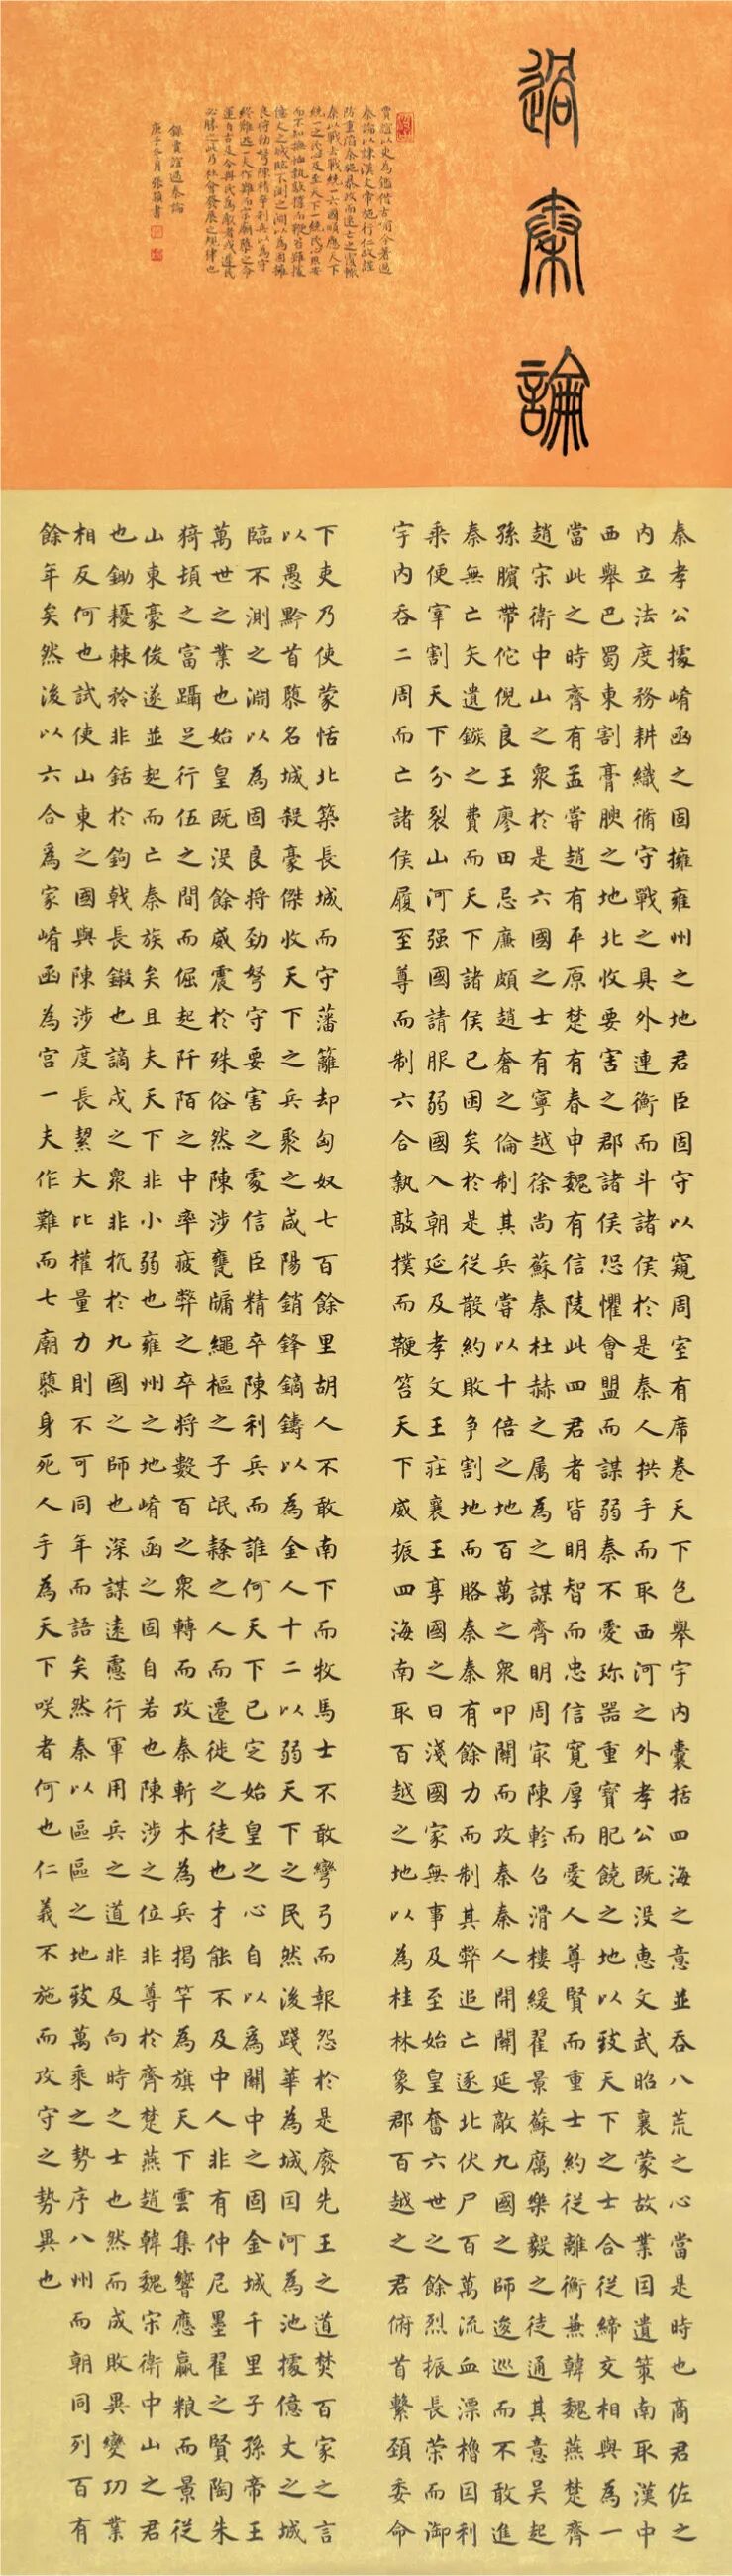 過秦論
賈誼以史為鑑借古喻今著過
秦論以諫漢文帝施行仁政謹
防重蹈秦施暴政而速亡之覆轍
秦以戰去戰統一六國順應天下
統一之民心及至天下一統民心思安
而不知撫恤執敲撲而鞭笞雖據
億丈之城臨不測之淵以為固擁
良將勁弩陳精卒利兵以為守
終難逃一夫作難而宗廟隳之命
運自古及今與民為敵者或遲民
必勝之此乃社會發展之規律也
錄賈誼過秦論
庚子冬月張穎書
秦孝公據崤函之固擁雍州之地君臣固守以窺周室有席卷天下包舉宇内囊括四海之意並吞八荒之心當是時也商君佐之
内立法度務耕織脩守戰之具外連衡而斗諸侯於是秦人拱手而取西河之外孝公既没惠文武昭襄蒙故業因遺策南取漢中
西舉巴蜀東割膏腴之地北收要害之郡諸侯恐懼會盟而謀弱秦不愛珍器重寶肥饒之地以致天下之士合從締交相與為一
當此之時齊有孟嘗趙有平原楚有春申魏有信陵此四君者皆明智而忠信寬厚而愛人尊賢而重士約從離衡兼韓魏燕楚齊
趙宋衛中山之衆於是六國之士有寧越徐尚蘇秦杜赫之属為之謀齊明周㝡陳軫召滑樓緩翟景蘇厲樂毅之徒通其意吴起
孫臏帶佗倪良王廖田忌廉頗趙奢之倫制其兵嘗以十倍之地百萬之衆叩關而攻秦秦人開關延敵九國之師逡巡而不敢進
秦無亡矢遺鏃之費而天下諸侯已困矣於是從散約敗争割地而賂秦秦有餘力而制其弊追亡逐北伏尸百萬流血漂櫓因利
乘便宰割天下分裂山河强國請服弱國入朝延及孝文王莊襄王享國之日淺國家無事及至始皇奮六世之餘烈振長策而御
宇内吞二周而亡諸侯履至尊而制六合執敲撲而鞭笞天下威振四海南取百越之地以為桂林象郡百越之君俯首繫頸委命
下吏乃使蒙恬北築長城而守藩籬却匈奴七百餘里胡人不敢南下而牧馬士不敢彎弓而報怨於是廢先王之道焚百家之言
以愚黔首隳名城殺豪傑收天下之兵聚之咸陽銷鋒鏑鑄以為金人十二以弱天下之民然後踐華為城因河為池據億丈之城
臨不測之淵以為固良將勁弩守要害之處信臣精卒陳利兵而誰何天下已定始皇之心自以爲關中之固金城千里子孫帝王
萬世之業也始皇既没餘威震於殊俗然陳涉甕牖繩樞之子氓隸之人而遷徙之徒也才能不及中人非有仲尼墨翟之賢陶朱
猗頓之富躡足行伍之間而倔起阡陌之中率疲弊之卒將數百之衆轉而攻秦斬木為兵揭竿為旗天下雲集響應贏粮而景從
山東豪俊遂並起而亡秦族矣且夫天下非小弱也雍州之地崤函之固自若也陳涉之位非尊於齊楚燕趙韓魏宋衛中山之君
也鋤櫌棘矜非銛於鉤戟長鎩也謫戍之衆非抗於九國之師也深謀遠慮行軍用兵之道非及向時之士也然而成敗異變功業
相反何也試使山東之國與陳涉度長絜大比權量力則不可同年而語矣然秦以區區之地致萬乘之勢序八州而朝同列百有
餘年矣然後以六合爲家崤函為宫一夫作難而七廟隳身死人手為天下咲者何也仁義不施而攻守之勢異也